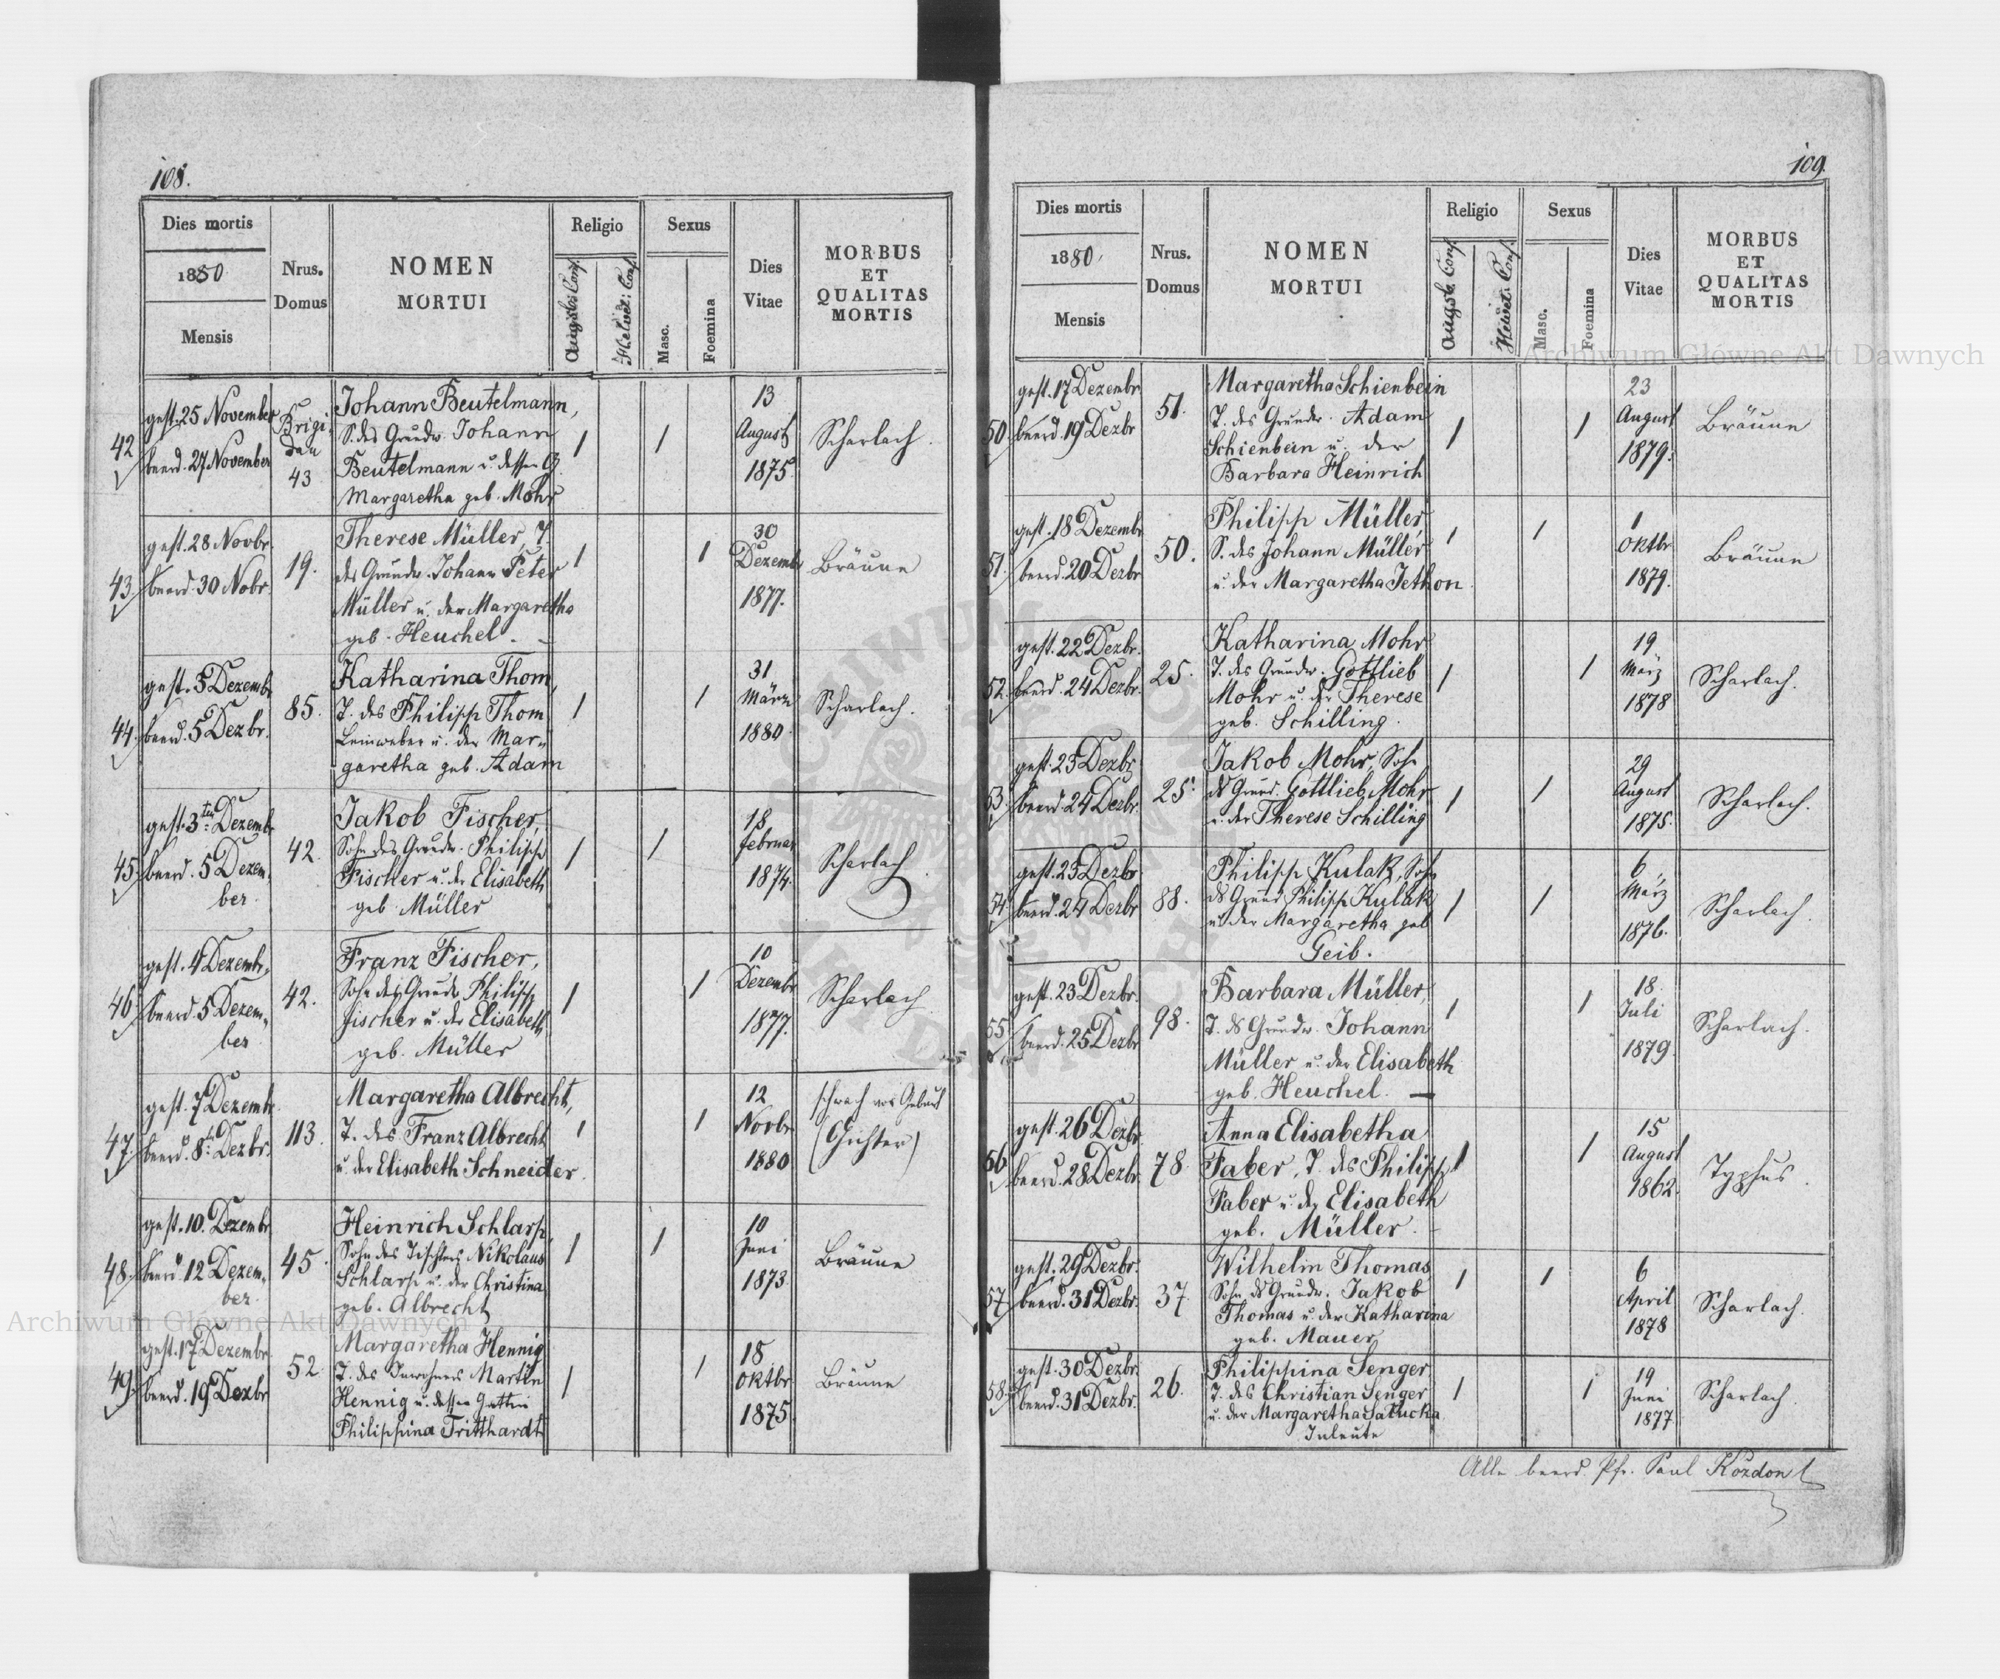 108.
Dies mortis
1880
Mensis
Nrus.
Domus
NOMEN
MORTUI
Religio
Augsb. Conf.
Helvet. Conf.
Sexus
Masc.
Foemina
Dies
Vitae
MORBUS
ET
QUALITAS
MORTIS
42
gest. 25 November
beerd. 27 November
Brigi-
dau
43
Johann Beutelmann,
S. des Grundw. Johann
Beutelmann u. dessen G.
Margaretha geb. Mohr
1
1
13
August
1875
Scharlach.
43.
gest. 28 Novbr.
beerd. 30 Nobr.
19.
Therese Müller, T.
des Grundw. Johann Peter
Müller u. der Margaretha
geb. Heuchel.
1
1
30
Dezemb
1877.
Bräune
44.
gest. 3 Dezembr
beerd. 5 Dezbr.
85.
Katharina Thom,
T. des Philipp Thom
Leinweber u. der Mar-
garetha geb. Adam
1
1
31
März
1880
Scharlach.
45.
gest. 3ten Dezembr
beerd. 5 Dezem-
ber.
42.
Jakob Fischer,
Sohn des Grundw. Philipp
Fischer u. der Elisabeth
geb. Müller
1
1
18
Februar
1874.
Scharlach.
46.
gest. 4 Dezembr.
beerd. 5 Dezem-
ber
42.
Franz Fischer,
Sohn des Grundw. Philipp
Fischer u. der Elisabeth
geb. Müller
1
1
10
Dezembr
1877.
Scharlach
47.
gest. 7 Dezembr.
beerd. 8t. Dezbr.
113.
Margaretha Albrecht,
T. des Franz Albrecht
u. der Elisabeth Schneider.
1
1
12
Novbr
1880
schwach von Geburt
(Gichter)
48.
gest. 10. Dezembr
beerd. 12 Dezem-
ber.
45.
Heinrich Schlarp,
Sohn des Tischlers Nikolaus
Schlarp u. der Christina
geb. Albrecht
1
1
10
Juni
1873
Bräune
49.
gest. 17 Dezembr.
beerd. 19 Dezbr
52.
Margaretha Hennig
T. des Inwohners Martin
Hennig u. dessen Gattin
Philippina Tritthardt
1
1
18
Oktbr
1875
Bräune
109.
Dies mortis
1880.
Mensis
Nrus.
Domus
NOMEN
MORTUI
Religio
Augsb. Conf.
Helvet. Conf.
Sexus
Masc.
Foemina
Dies
Vitae
MORBUS
ET
QUALITAS
MORTIS
50.
gest. 17 Dezembr
beerd. 19 Dezbr
51.
Margaretha Schienbein
T. des Grundw. Adam
Schienbein u. der
Barbara Heinrich
1
1
23
August
1879.
Bräune
51.
gest. 18 Dezembr
beerd. 20 Dezbr
50.
Philipp Müller,
S. des Johann Müller
u. der Margaretha Jethon.
1
1
1
Oktbr
1879.
Bräune
52.
gest. 22 Dezbr.
beerd. 24 Dezbr.
25.
Katharina Mohr
T. des Grundw. Gottlieb
Mohr u. der Therese
geb. Schilling.
1
1
19
März
1878
Scharlach.
53.
gest. 23 Dezbr.
beerd. 24 Dezbr.
25.
Jakob Mohr, Sohn
ds Grund. Gottlieb Mohr
u. der Therese Schilling
1
1
29
August
1875.
Scharlach.
54.
gest. 23 Dezbr
beerd. 24 Dezbr
88.
Philipp Kulak, Sohn
ds Grund Philipp Kulak
u. der Margaretha geb
Geib.
1
1
6
März
1876.
Scharlach.
55.
gest. 23 Dezbr.
beerd. 25 Dezbr
98.
Barbara Müller,
T. ds Grundw. Johann
Müller u. der Elisabeth
geb. Heuchel.
1
1
18.
Juli
1879
Scharlach.
56.
gest. 26 Dezbr.
beerd. 28 Dezbr.
78.
Anna Elisabetha
Faber, T. des Philipp
Faber u. der Elisabeth
geb. Müller.
1
1
15
August
1862.
Typhus.
57.
gest. 29 Dezbr.
beerd. 31 Dezbr.
37.
Wilhelm Thomas,
Sohn ds Grundw. Jakob
Thomas u. der Katharina
geb. Mauer
1
1
6
April
1878
Scharlach.
58.
gest. 30 Dezbr.
beerd. 31 Dezbr.
26.
Philippina Senger
T. des Christian Senger
u. der Margaretha Satucka
Inleute
1
1
19
Juni
1877
Scharlach.
Alle beerd. Pfr. Paul Kozdon
Archiwum Główne Akt Dawnych
Archiwum Główne Akt Dawnych